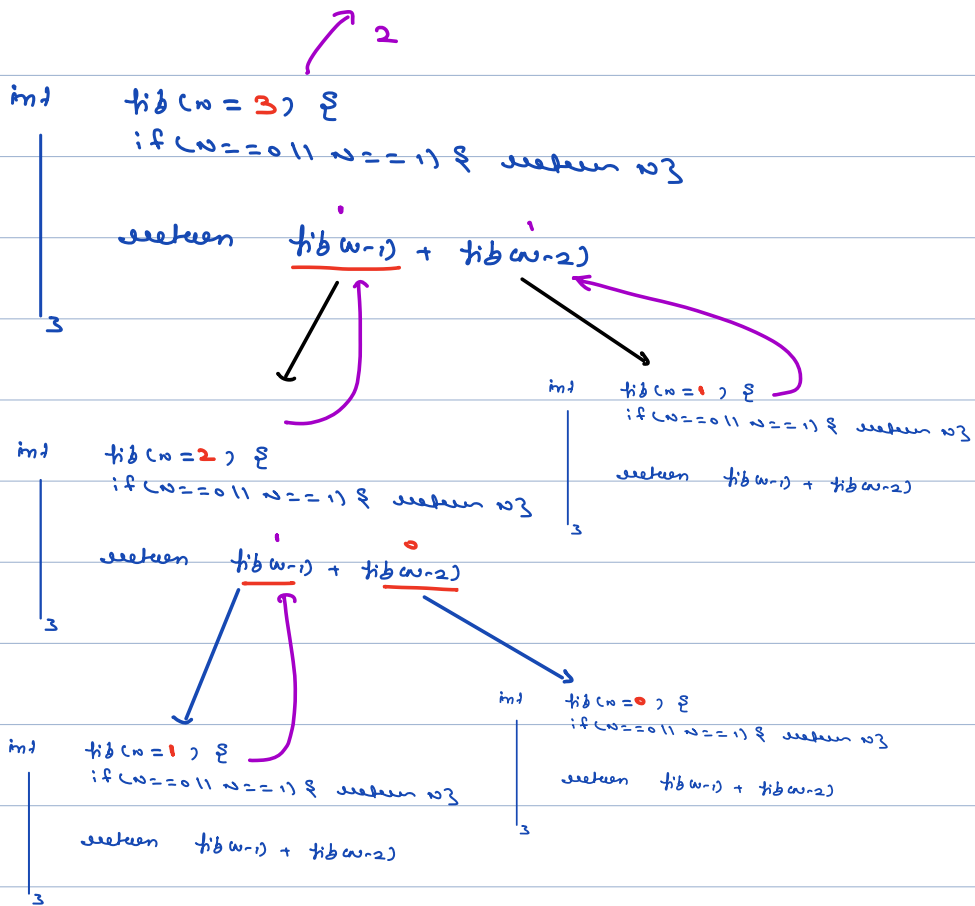 2
int fib(N = 3) {
if(N==0 || N==1) { return N}
1 1
return fib(N-1) + fib(N-2)
}
int fib(N = 1) {
if(N==0 || N==1) { return N}
return fib(N-1) + fib(N-2)
}
int fib(N = 2) {
if(N==0 || N==1) { return N}
1 0
return fib(N-1) + fib(N-2)
}
int fib(N = 0) {
if(N==0 || N==1) { return N}
return fib(N-1) + fib(N-2)
}
int fib(N = 1) {
if(N==0 || N==1) { return N}
return fib(N-1) + fib(N-2)
}